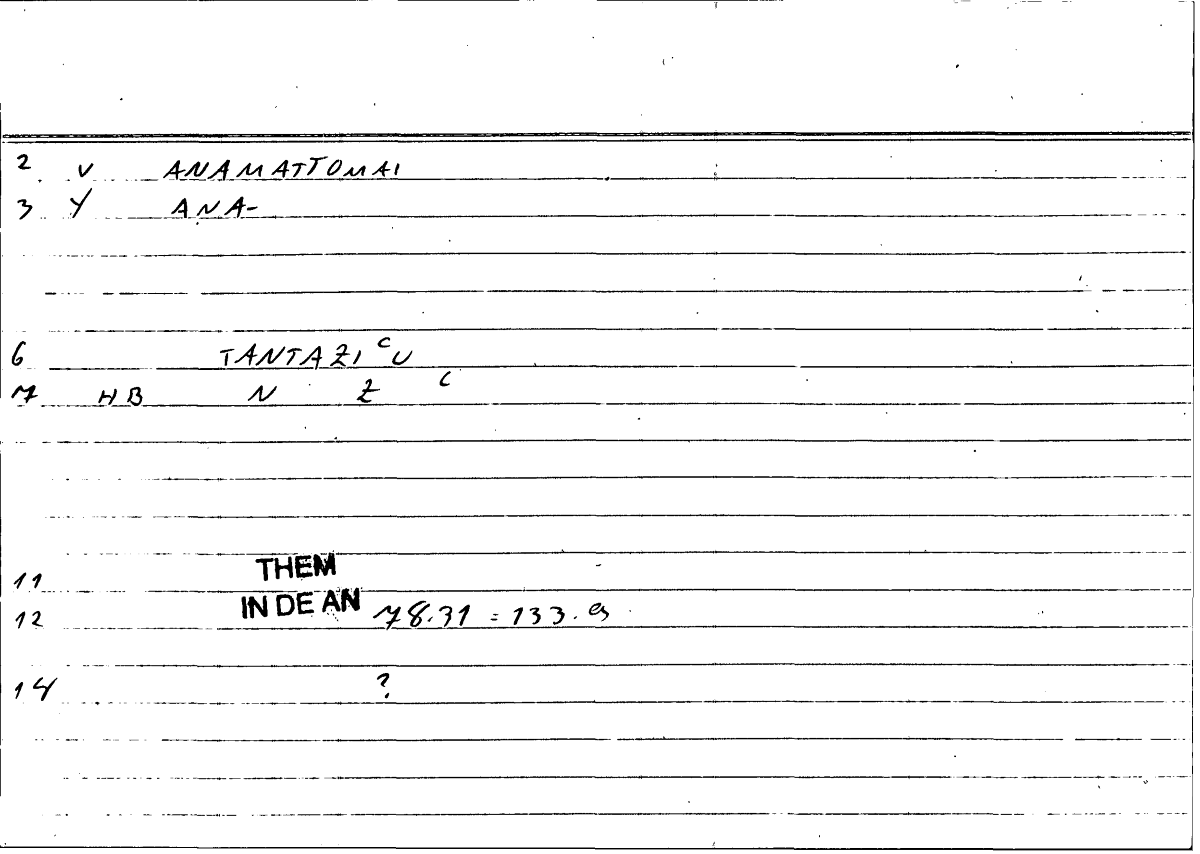 2 v ANAMATTOMAI
3 Y ANA-
6 TANTAZI ᶜU
7 HB N Z ᶜ
11 THEM
12 IN DE AN 78.31 = 133.
14 ?